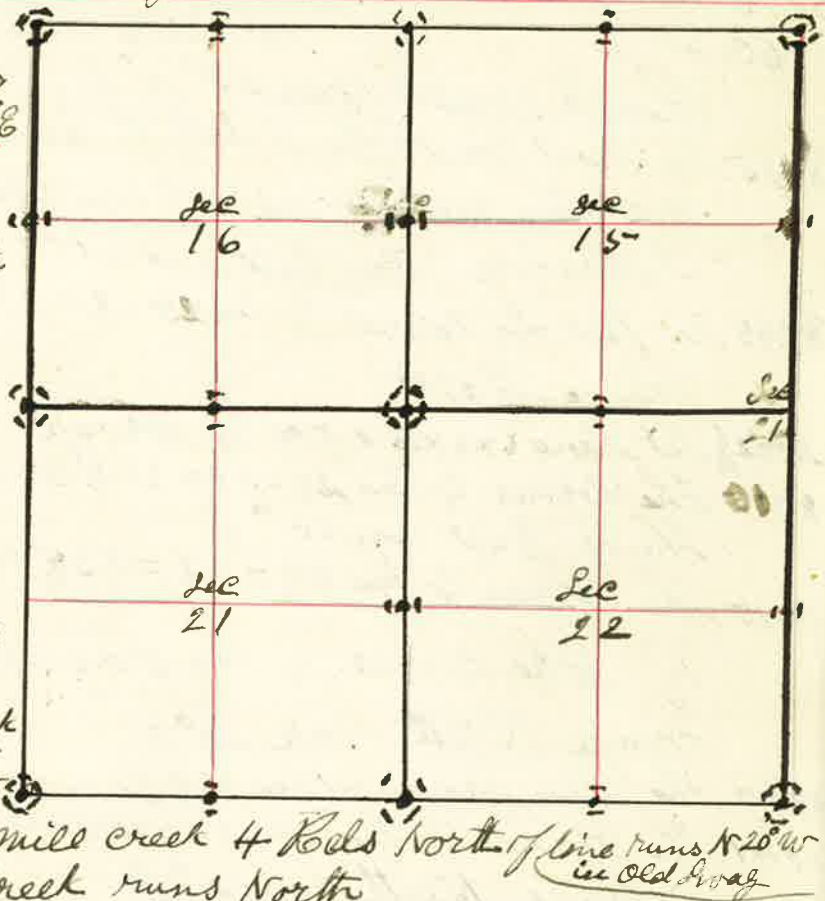 E
Sec
16
Sec
15
Sec
21
Sec
21
Sec
22
k
mill creek 4 Rods North of line runs N 20° W
in Old
reek runs North